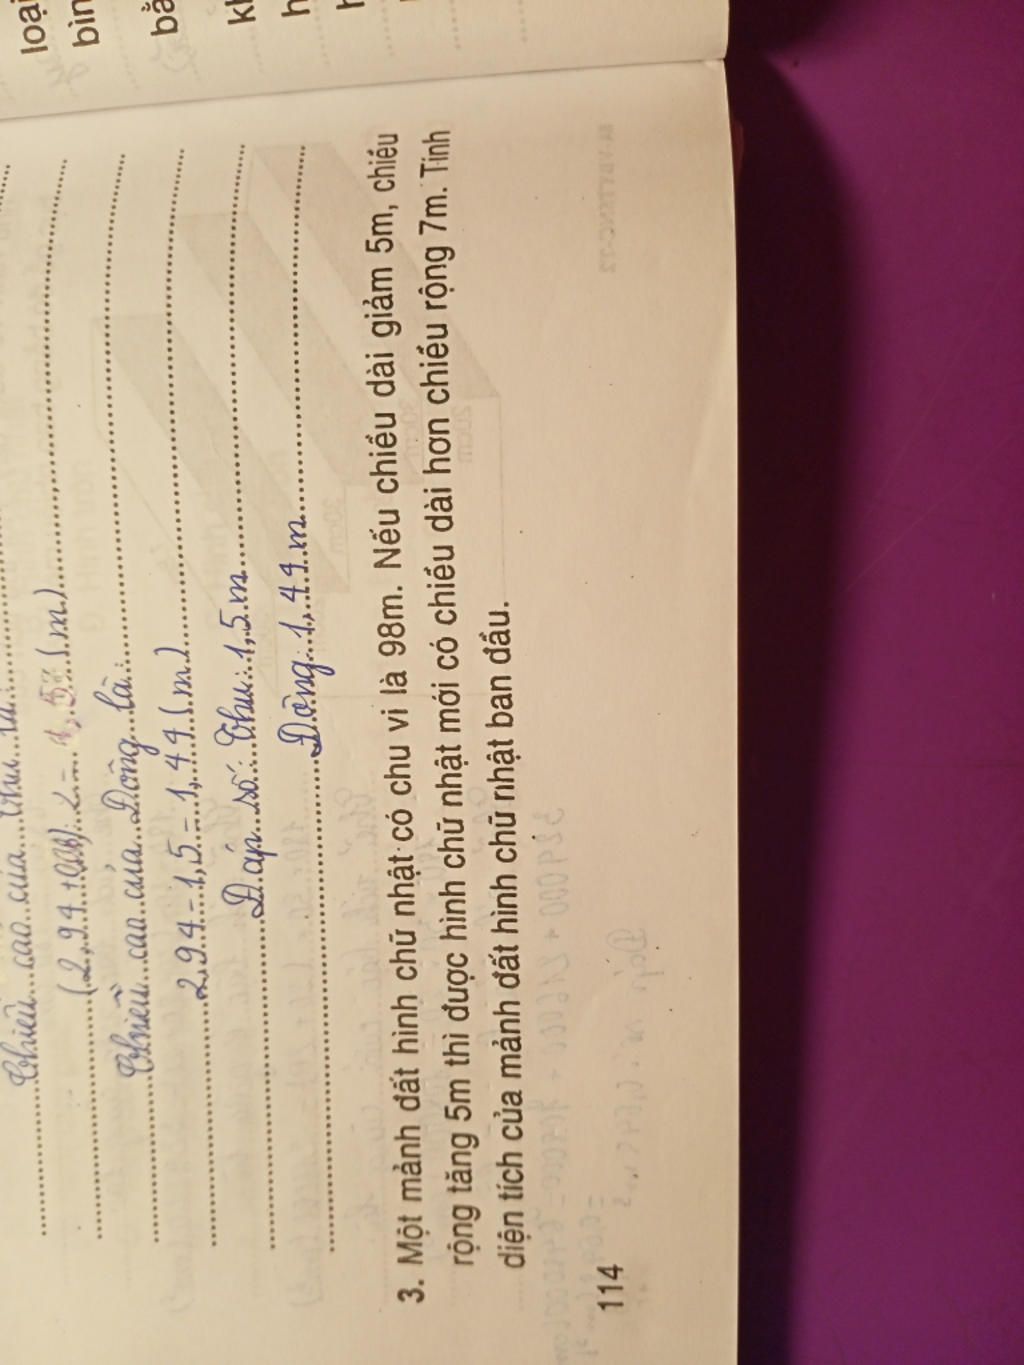 loại
bìn
bằ
Chiều cao của Thu là
(2,94 + 0,06) : 2 = 1,5 (m)
Chiều cao của Dũng là:
2,94 - 1,5 = 1,44 (m)
Đáp số: Thu: 1,5m
1,44m
3. Một mảnh đất hình chữ nhật có chu vi là 98m. Nếu chiều dài giảm 5m, chiều
rộng tăng 5m thì được hình chữ nhật mới có chiều dài hơn chiều rộng 7m. Tính
diện tích của mảnh đất hình chữ nhật ban đầu.
114